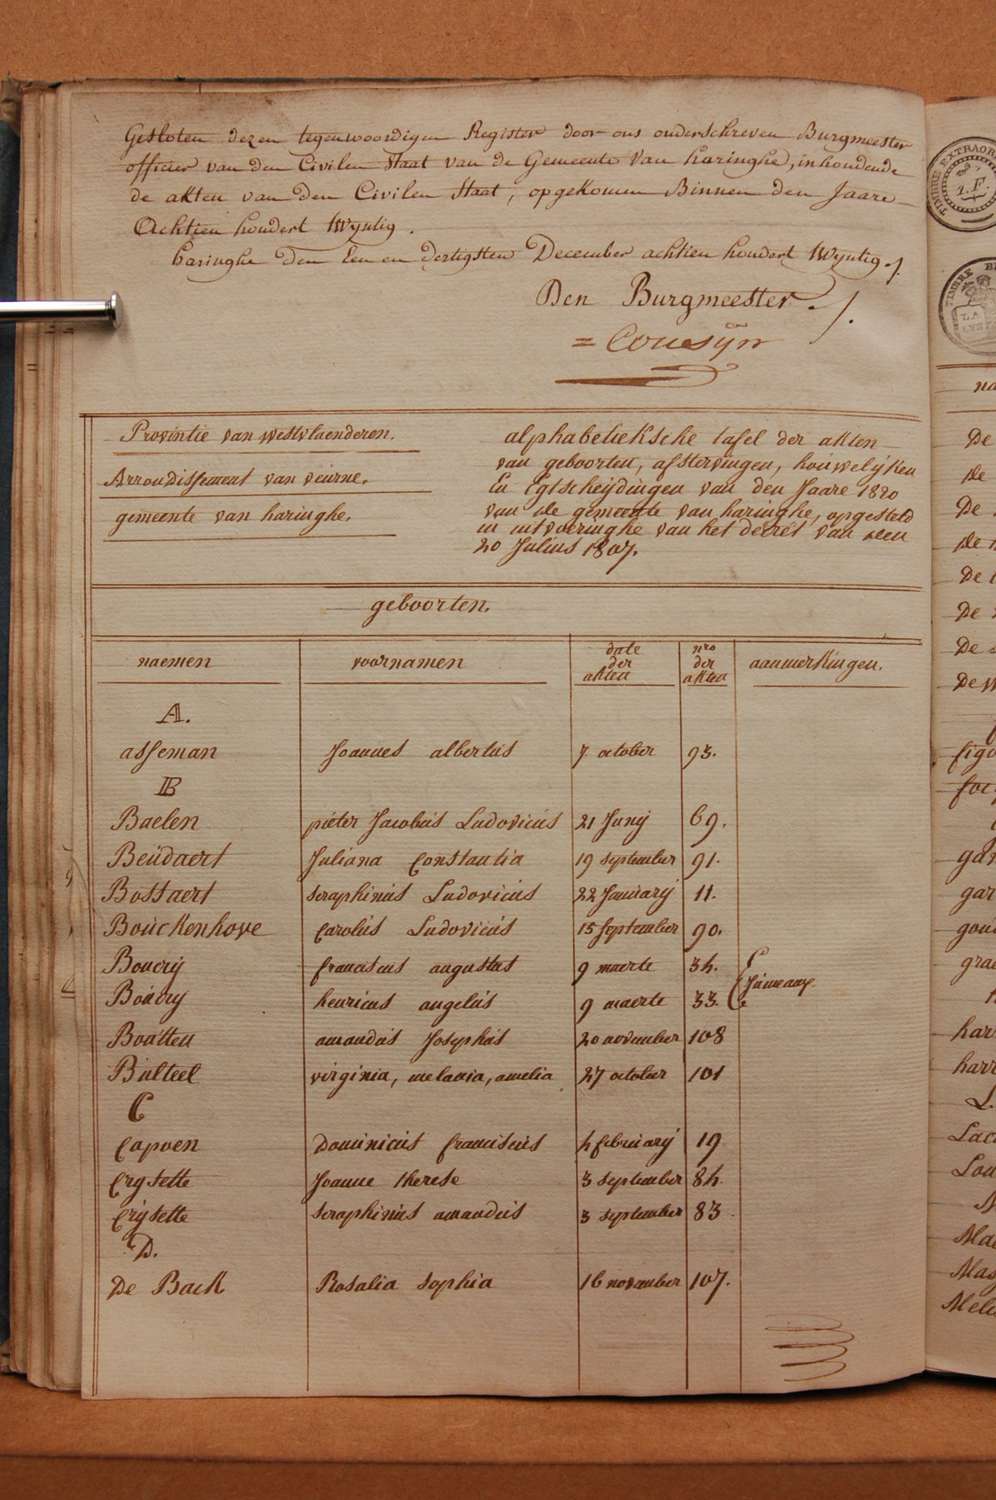 Gesloten dezen tegenwoordigen Register door ons onderschreven Burgmeester
officier van den Civilen Staat van de Gemeente van haringhe, inhoudende
de akten van den Civilen Staat, opgekomen Binnen den Jaare
Achtien hondert twyntig.
haringhe den Een en dertigsten December achtien hondert twyntig ./.
Den Burgmeester ./.
= Cousijn
Provintie van westvlaenderen.
Arrondissement van veurne.
gemeente van haringhe.
alphabetieksche tafel der akten
van geboorten, afstervingen, houwelijken
En Egtscheijdingen van den Jaare 1820
van de gemeente van haringhe, opgesteld
in uitvoeringhe van het decret van den
20 Julius 1807.
geboorten.
naemen voornamen date der akten nro der akten aanmerkingen.
A.
asseman Joannes albertus 7 october 93.
B
Baelen pieter Jacobus Ludovicus 21 Junij 69.
Beudaert Juliana Constantia 19 september 91.
Bossaert seraphinus Ludovicus 22 Januarij 11.
Bouckenhove Carolus Ludovicus 15 september 90.
Boucry franciscus augustus 9 maerte 34.
Boucry henricus angelus 9 maerte 33. Jumeaux
Boutten amandus Josephus 20 november 108
Bulteel virginia, melania, amelia 27 october 101
C
Capoen Dominicus franciscus 4 februarij 19
Crysette Joanne therese 3 september 84.
Crysette seraphinus amandus 3 september 83.
D.
De Back Rosalia sophia 16 november 107.
TIMBRE EXTRAOR
1.F.
TIMBRE
De
De
De
De
De
De
De
De W
figo
gar
gar
gou
grae
har
harr
L.
Lac
Lou
Mae
Mas